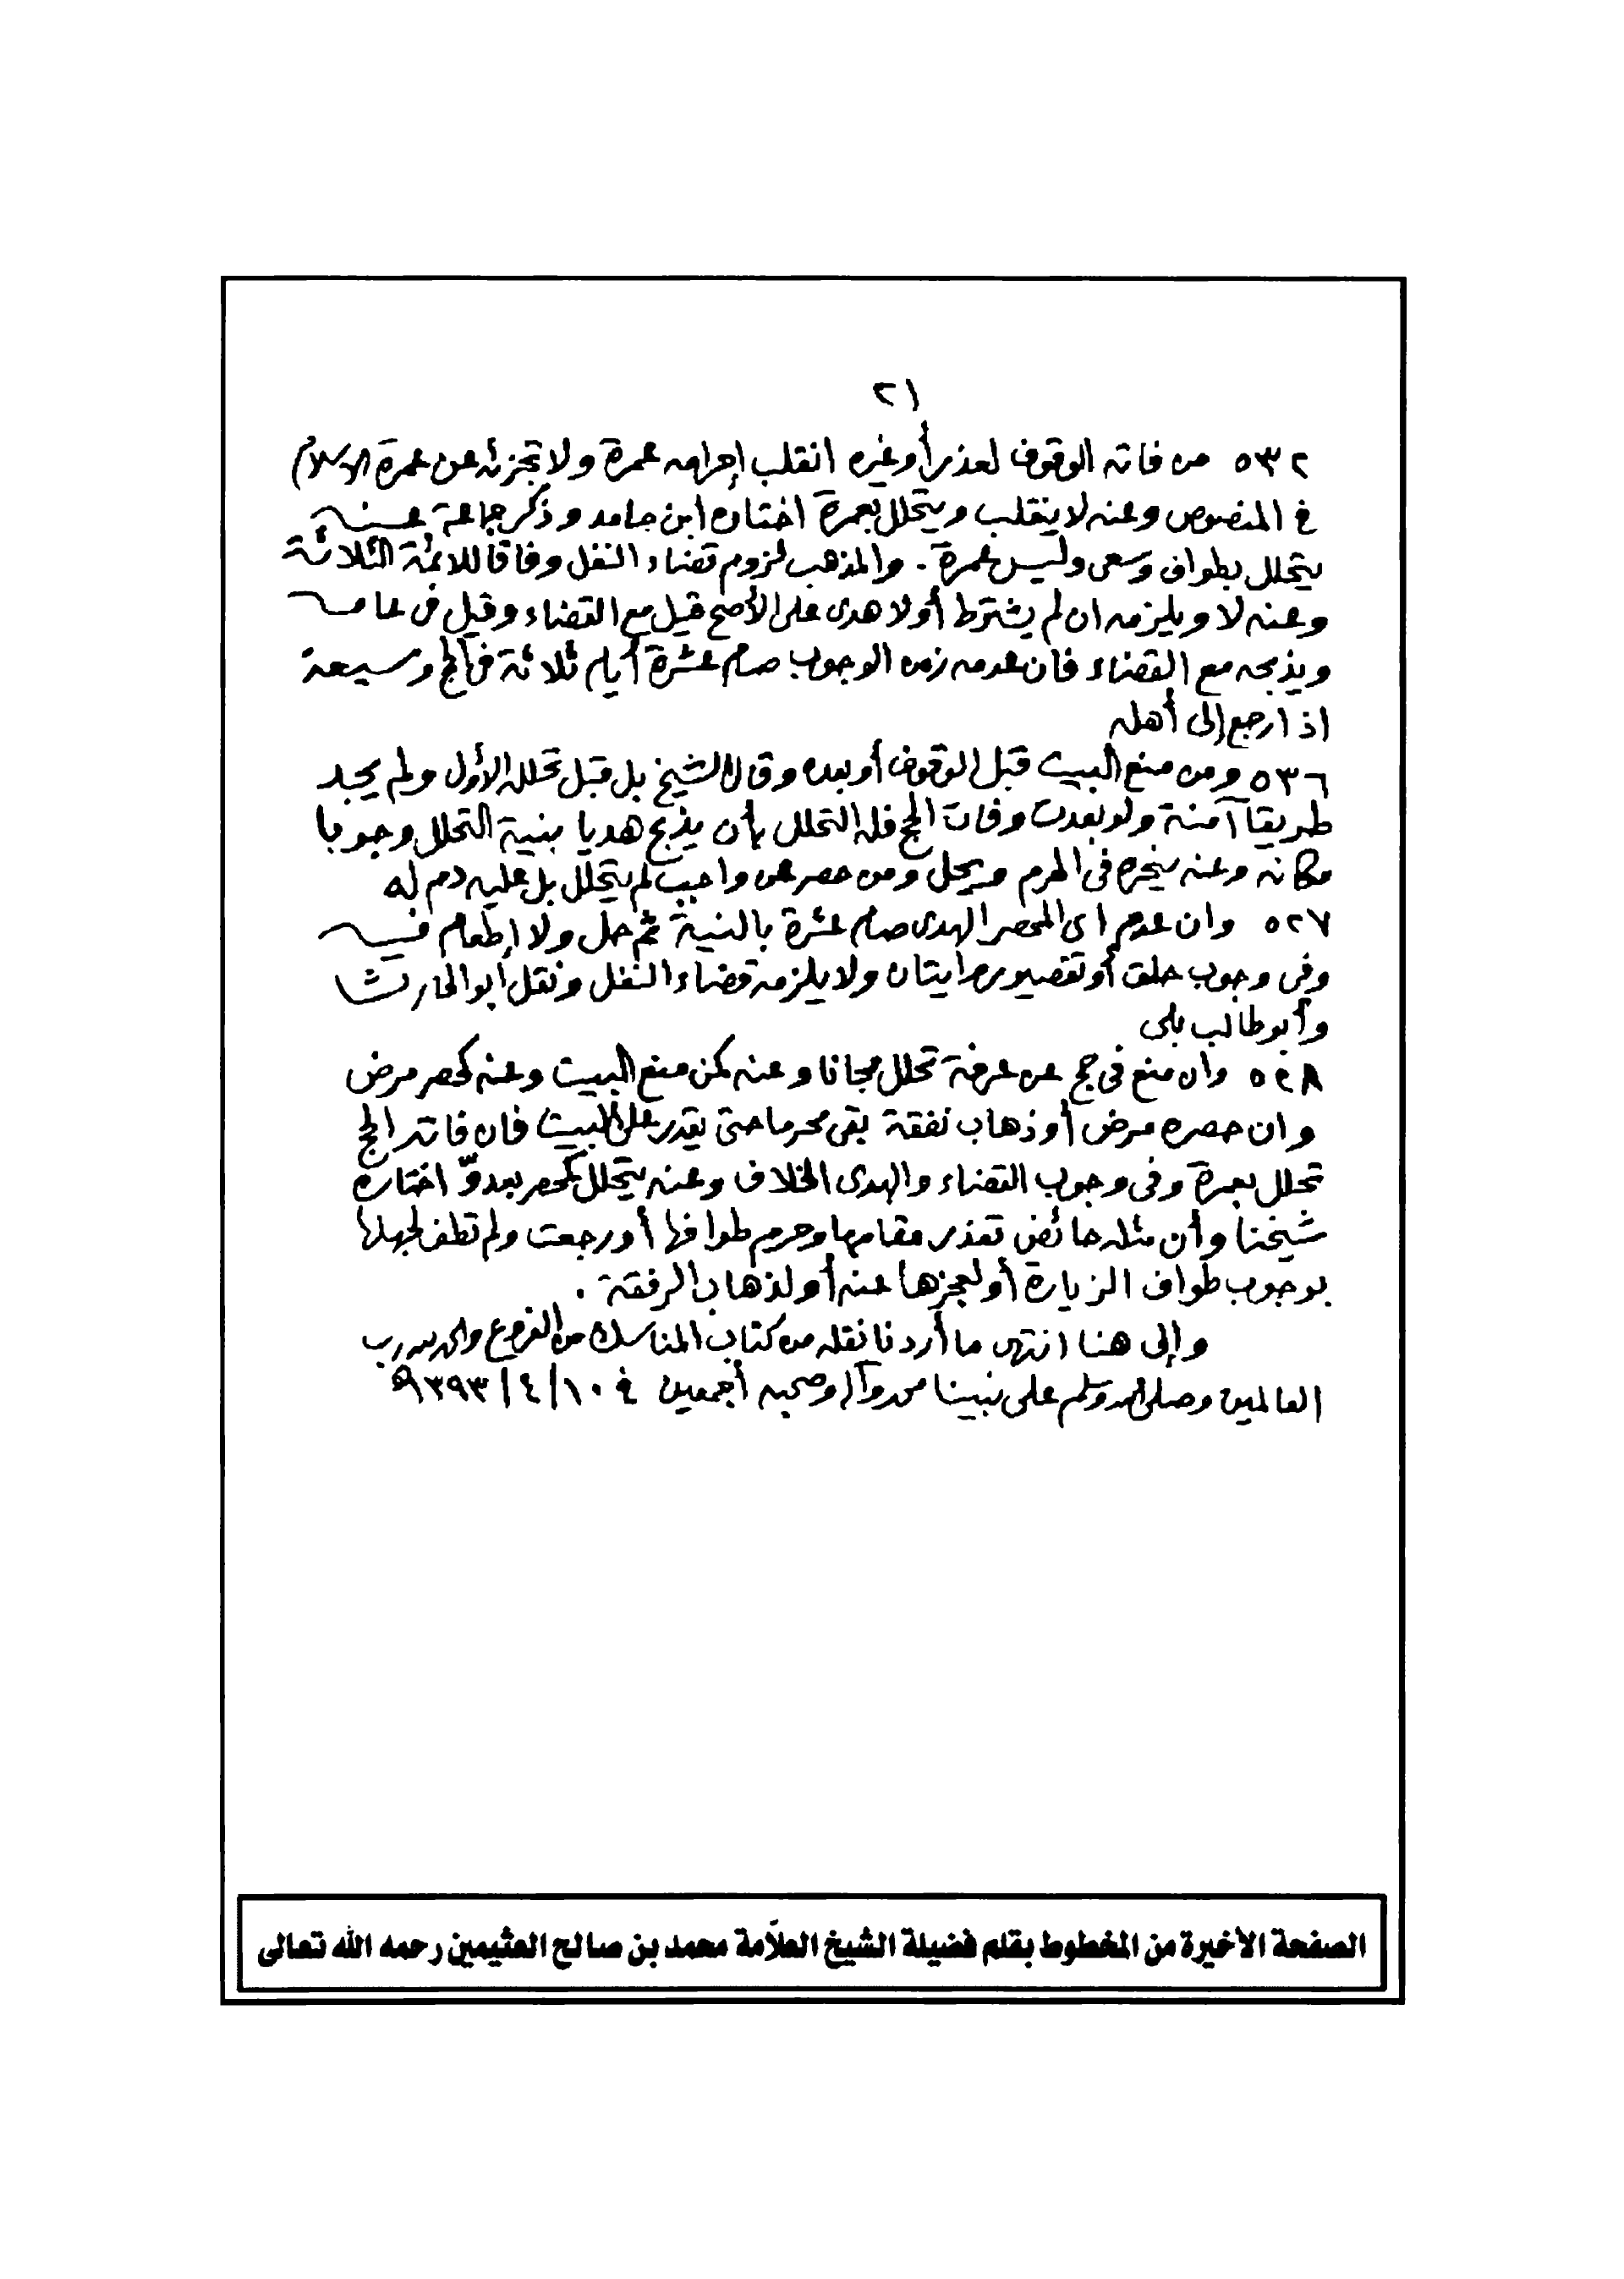 ٢١
٥٣٢ من فاته الوقوف لعذر أو غيره انقلب إحرامه عمرة ولا تجزئه عن عمرة الإسلام
في المنصوص وعنه لا ينقلب ويتحلل بعمرة اختاره ابن حامد وذكر جماعة عنه
يتحلل بطواف وسعي وليس عمرة. والمذهب لزوم قضاء النفل وفاقا للائمة الثلاثة
وعنه لا ويلزمه ان لم يشترط أولا هدى على الأصح قيل مع القضاء وقيل في عامه
ويذبحه مع القضاء فان عدمه زمن الوجوب صام عشرة أيام ثلاثة في الحج وسبعة
اذا رجع إلى أهله
٥٣٦ ومن منع البيت قبل الوقوف أو بعده وقال الشيخ بل قبل تحلله الأول ولم يجد
طريقا آمنة ولو بعدت وفات الحج فله التحلل بأن يذبح هديا بنية التحلل وجوبا
مكانه وعنه ينحره في الحرم ويحل ومن حصر عن واجب لم يتحلل بل عليه دم له
٥٢٧ وان عدم اي المحصر الهدى صام عشرة بالنية ثم حل ولا إطعام فيه
وفي وجوب حلق أو تقصير روايتان ولا يلزمه قضاء النفل ونقل أبو الحارث
وأبو طالب بلى
٥٢٨ وان منع في حج عن عرفة تحلل مجانا وعنه كمن منع البيت وعنه كحصر مرض
وان حصره مرض أو ذهاب نفقة بقي محرما حتى يقدر على البيت فان فاته الحج
تحلل بعمرة وفي وجوب القضاء والهدى الخلاف وعنه يتحلل كمحصر بعدوّ اختاره
شيخنا وأن مثله حائض تعذر مقامها وحرم طوافها أو رجعت ولم تطف لجهلها
بوجوب طواف الزيارة أو لعجزها عنه أو لذهاب الرفقة.
وإلى هنا انتهى ما أردنا نقله من كتاب المناسك من الفروع والحمد لله رب
العالمين وصلى الله وسلم على نبينا محمد وآله وصحبه أجمعين في ١٠/٤/١٣٩٣هـ
الصفحة الأخيرة من المخطوط بقلم فضيلة الشيخ العلاّمة محمد بن صالح العثيمين رحمه الله تعالى